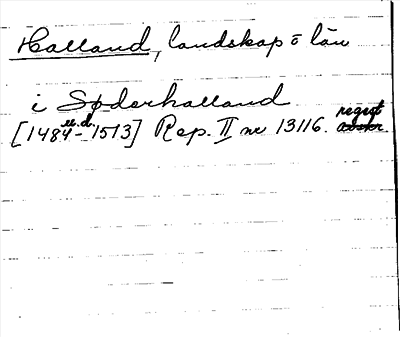 Halland, landskap o län
i Søderhalland
u.d. regest
[1484-1513] Rep. II nr 13116. avskr.